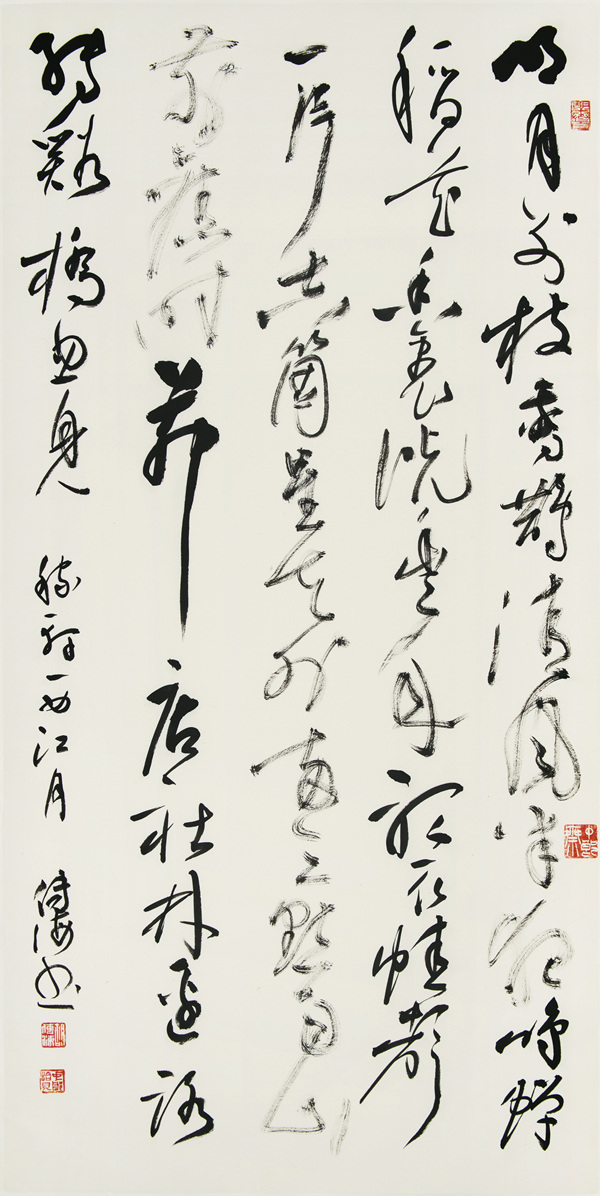 明月别枝驚鵲清風半夜鳴蟬
稻花香裏説豐年聽取蛙聲
一片七八箇星天外兩三點雨山
前舊時茅店社林邊路
轉谿橋忽見 稼軒西江月 書